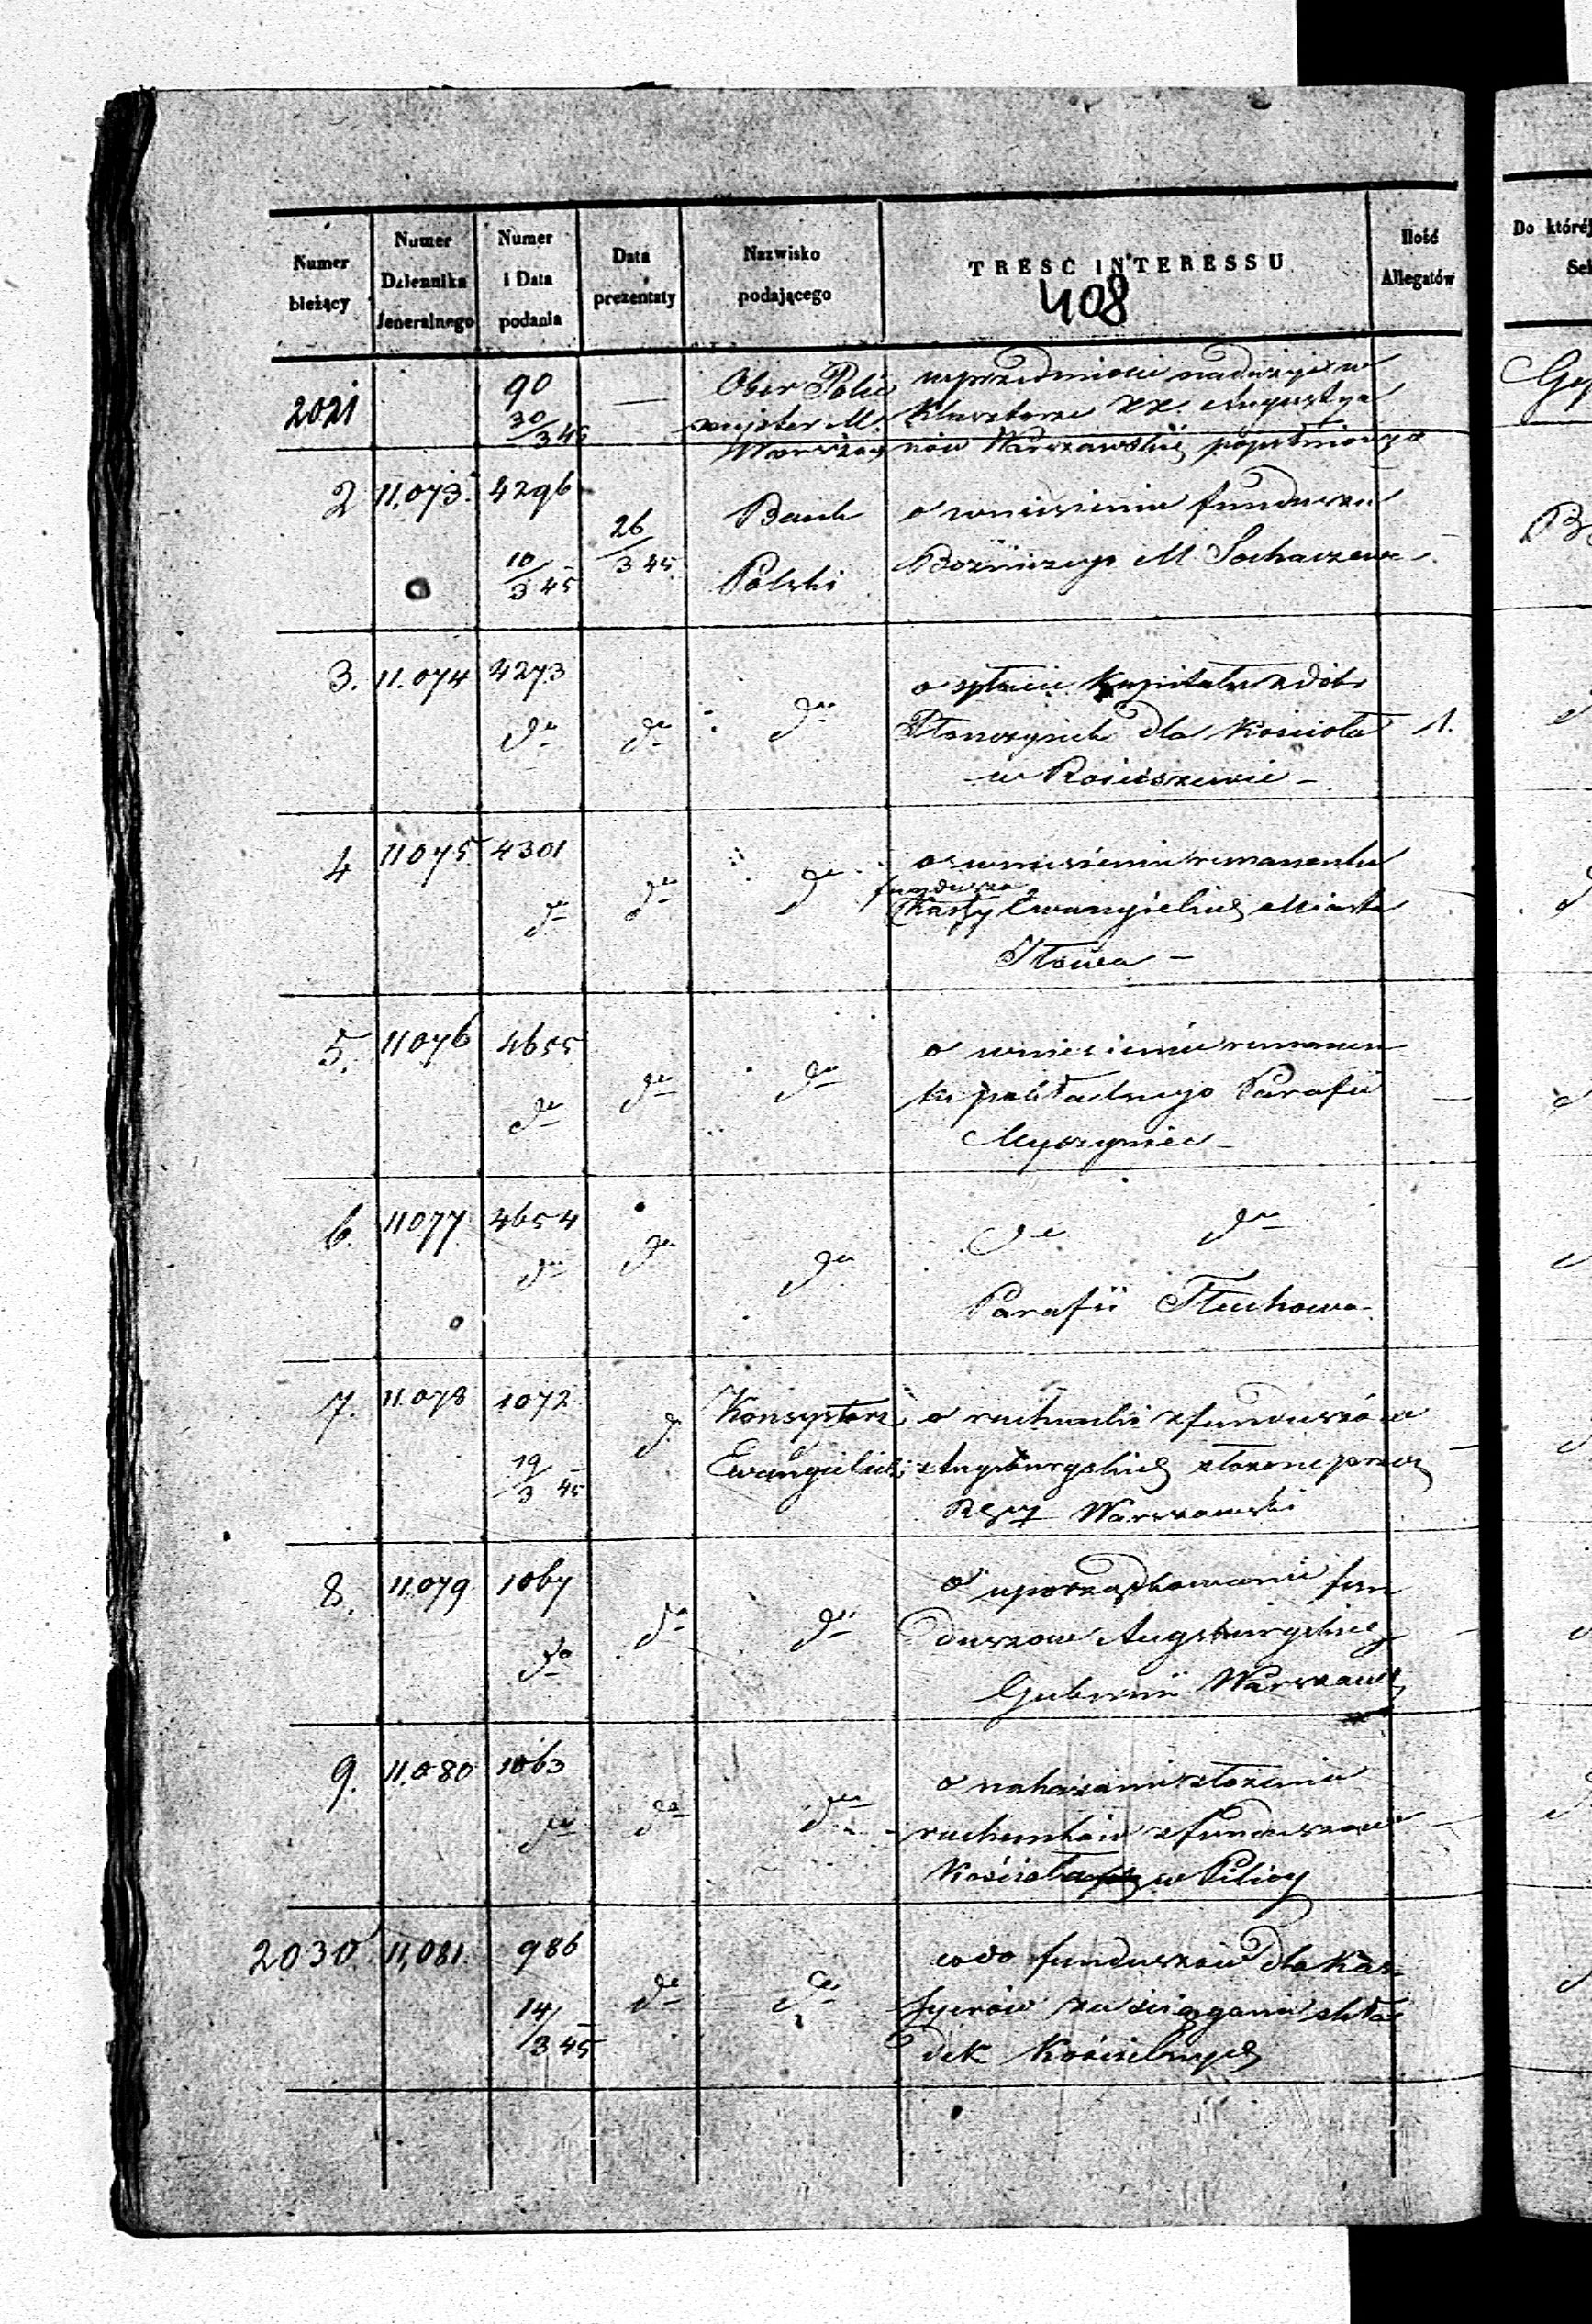 Numer bieżący | Numer Dziennika Jeneralnego | Numer i Data podania | Data prezentaty | Nazwisko podającego | TRESC INTERESSU | Ilość Allegatów | Do któréj
408
2021 | 90 30/3 45 | — | Ober Polic
majster M.
Warszawy
w przedmiocie nadużyć w
Klasztorze XX. Augustya
nów Warszawskich popełnionych
2 | 11.073. | 4296 10/3 45 | 26/3 45. | Bank
Polski
o wniesienie funduszu
Bożniczego M. Sochaczewa —
3. | 11.074 | 4273 do | do | do
o spłacie kapitału z dóbr
Płonczynek dla Kościoła | 1.
w Rościszewie —
4 | 11075 | 4301 do | do | do
o wniesienie remanentu
funduszu
Kassy Ewangielickiej Miasta
Iłowa —
5. | 11076 | 4655 do | do | do
o wniesienie remanen
tu pokładnego Parafii
Myszyniec —
6. | 11077 | 4654 do | do | do
do do
Parafii Tłuchowo
7. | 11.078 | 1072 19/3 45 | do | Konsystorz
Ewangielicki
o rachunki z funduszów
Augsburgskich złożone przez
Warszawski
8. | 11.079 | 1067 do | do | do
o uporządkowanie fun
duszow Augsburgskich
Gubernii Warszaws
9. | 11.080 | 1063 do | do | do
o nakazanie złożenia
rachunków z funduszów
Kościoła w Pilicy
2030. | 11,081. | 986 14/3 45 | do | do
co do funduszów dla Kas-
syerów za ściąganie skła
dek Kościelnych